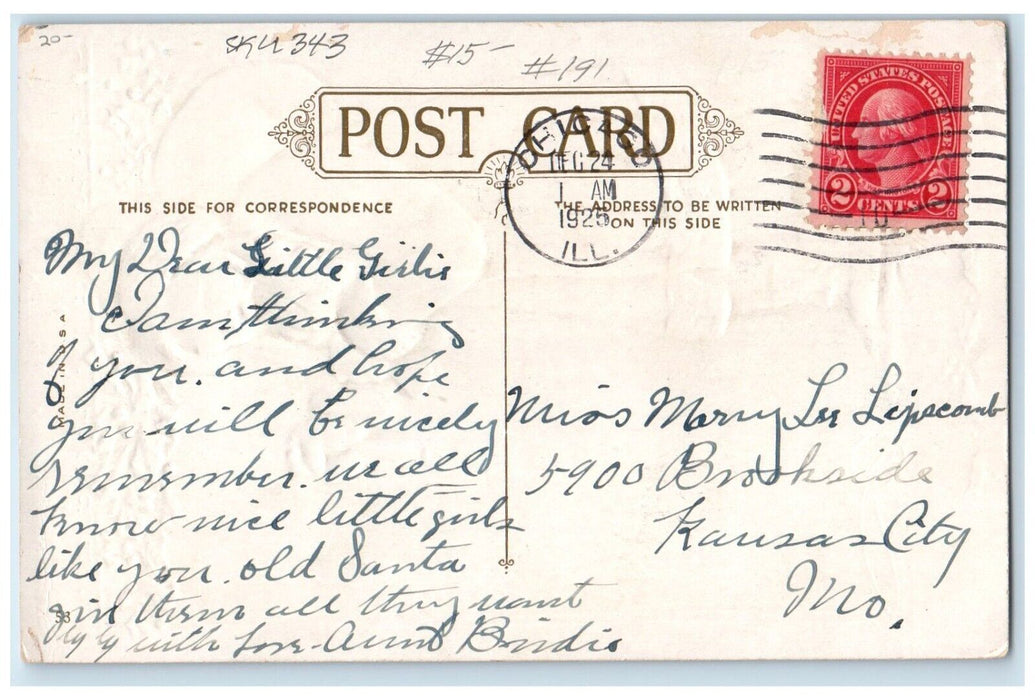 20-
SKU 343
#15-
#191.
POST CARD
UNITED STATES POSTAGE
2 CENTS 2
CHICAGO
DEC 24
1 AM
1925
ILL.
THIS SIDE FOR CORRESPONDENCE
THE ADDRESS TO BE WRITTEN
ON THIS SIDE
MADE IN USA
My Dear Little Girlie
I am thinking
of you. and hope
you will be nicely
remember. we all
know nice little girls
like you. old Santa
giv them all they want
By By with Love Aunt Birdie
53
Miss Merry Lee Lipscomb
5900 Brookside
Kansas City
Mo.